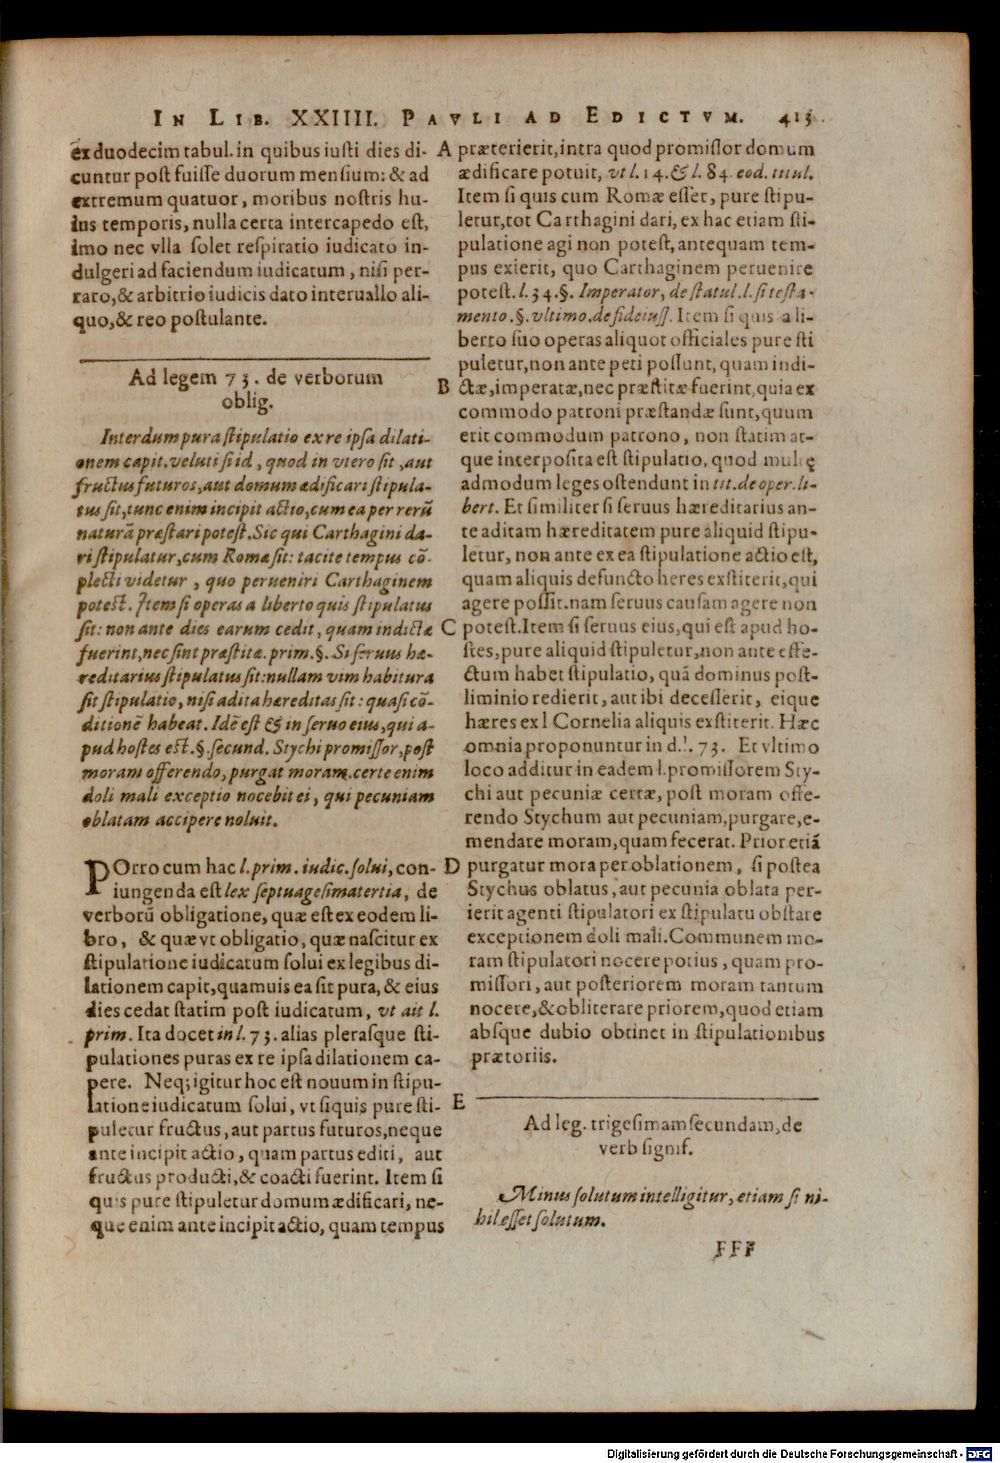 IN LIB. XXIIII. PAVLI AD EDICTVM. 413
ex duodecim tabul. in quibus iusti dies di-
cuntur post fuisse duorum mensium: & ad
extremum quatuor, moribus nostris hu-
ius temporis, nulla certa intercapedo est,
imo nec vlla solet respiratio iudicato in-
dulgeri ad faciendum iudicatum, nisi per-
raro, & arbitrio iudicis dato interuallo ali-
quo, & reo postulante.
Ad legem 73. de verborum
oblig.
Interdum pura stipulatio ex re ipsa dilati-
onem capit. veluti si id, quod in vtero sit, aut
fructus futuros, aut domum ædificari stipula-
tus sit, tunc enim incipit actio, cum ea per rerũ
naturã præstari potest. Sic qui Carthagini da-
ri stipulatur, cum Romæ sit: tacite tempus cõ-
plecti videtur, quo perueniri Carthaginem
potest. Item si operas a liberto quis stipulatus
sit: non ante dies earum cedit, quam indictæ
fuerint, nec sint præstitæ. prim. §. Si seruus hæ-
reditarius stipulatus sit: nullam vim habitura
sit stipulatio, nisi adita hæreditas sit: quasi cõ-
ditionẽ habeat. Idẽ est & in seruo eius, qui a-
pud hostes est. §. secund. Stychi promissor, post
moram offerendo, purgat moram. certe enim
doli mali exceptio nocebit ei, qui pecuniam
oblatam accipere noluit.
POrro cum hac l. prim. iudic. solui, con-
iungenda est lex septuagesima tertia, de
verborũ obligatione, quæ est ex eodem li-
bro, & quæ vt obligatio, quæ nascitur ex
stipulatione iudicatum solui ex legibus di-
lationem capit, quamuis ea sit pura, & eius
dies cedat statim post iudicatum, vt ait l.
prim. Ita docet in l. 73. alias plerasque sti-
pulationes puras ex re ipsa dilationem ca-
pere. Neq; igitur hoc est nouum in stipu-
latione iudicatum solui, vt si quis pure sti-
puletur fructus, aut partus futuros, neque
ante incipit actio, quam partus editi, aut
fructus producti, & coacti fuerint. Item si
quis pure stipuletur domum ædificari, ne-
que enim ante incipit actio, quam tempus
A præterierit, intra quod promissor domum
ædificare potuit, vt l. 14. & l. 84. eod. titul.
Item si quis cum Romæ esset, pure stipu-
letur, tot Carthagini dari, ex hac etiam sti-
pulatione agi non potest, antequam tem-
pus exierit, quo Carthaginem peruenire
potest. l. 34. §. Imperator, de statul. l. si testa-
mento. §. vltimo. de fideiuss. Item si quis a li-
berto suo operas aliquot officiales pure sti
puletur, non ante peti possunt, quam indi-
B ctæ, imperatæ, nec præstitæ fuerint, quia ex
commodo patroni præstandæ sunt, quum
erit commodum patrono, non statim at-
que interposita est stipulatio, quod multę
admodum leges ostendunt in tit. de oper. li-
bert. Et similiter si seruus hæreditarius an-
te aditam hæreditatem pure aliquid stipu-
letur, non ante ex ea stipulatione actio est,
quam aliquis defuncto heres exstiterit, qui
agere possit. nam seruus causam agere non
C potest. Item si seruus eius, qui est apud ho-
stes, pure aliquid stipuletur, non ante effe-
ctum habet stipulatio, quã dominus post-
liminio redierit, aut ibi decesserit, eique
hæres ex l Cornelia aliquis exstiterit. Hæc
omnia proponuntur in d. l. 73. Et vltimo
loco additur in eadem l. promissorem Sty-
chi aut pecuniæ certæ, post moram offe-
rendo Stychum aut pecuniam, purgare, e-
mendare moram, quam fecerat. Prior etiã
D purgatur mora per oblationem, si postea
Stychus oblatus, aut pecunia oblata per-
ierit agenti stipulatori ex stipulatu obstare
exceptionem doli mali. Communem mo-
ram stipulatori nocere potius, quam pro-
missori, aut posteriorem moram tantum
nocere, & obliterare priorem, quod etiam
absque dubio obtinet in stipulationibus
prætoriis.
E
Ad leg. trigesimam secundam, de
verb signif.
Minus solutum intelligitur, etiam si ni-
hil esset solutum.
FFF
Digitalisierung gefördert durch die Deutsche Forschungsgemeinschaft - DFG